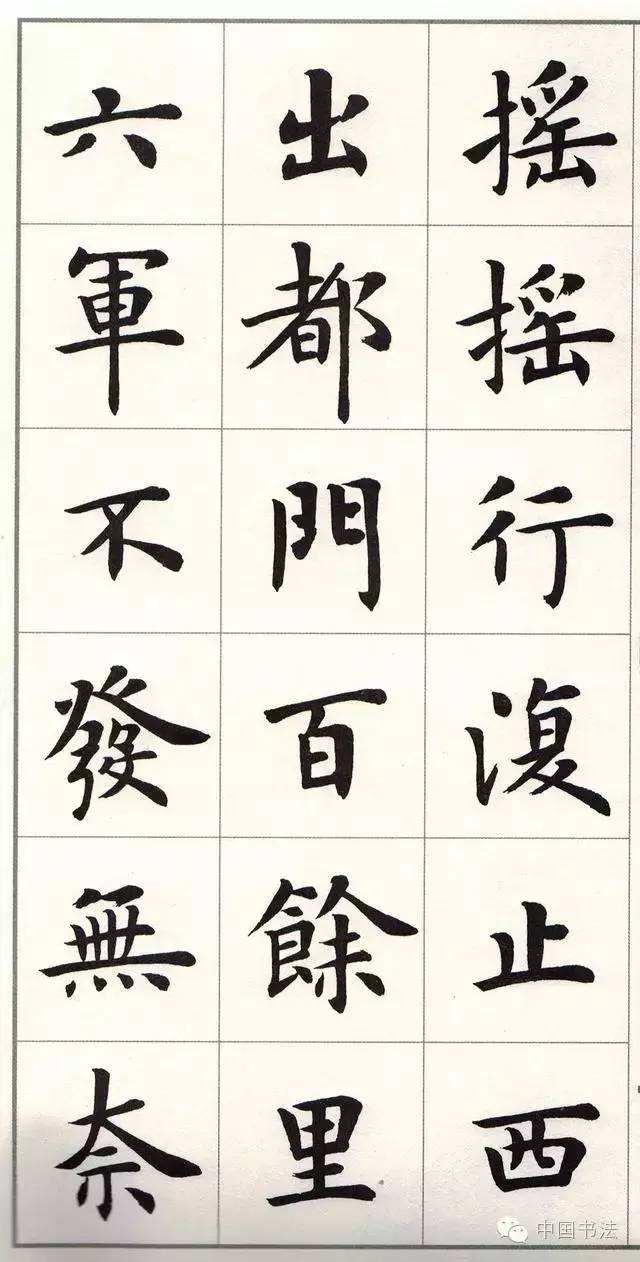 摇摇行復止西
出都門百餘里
六軍不發無奈
中国书法